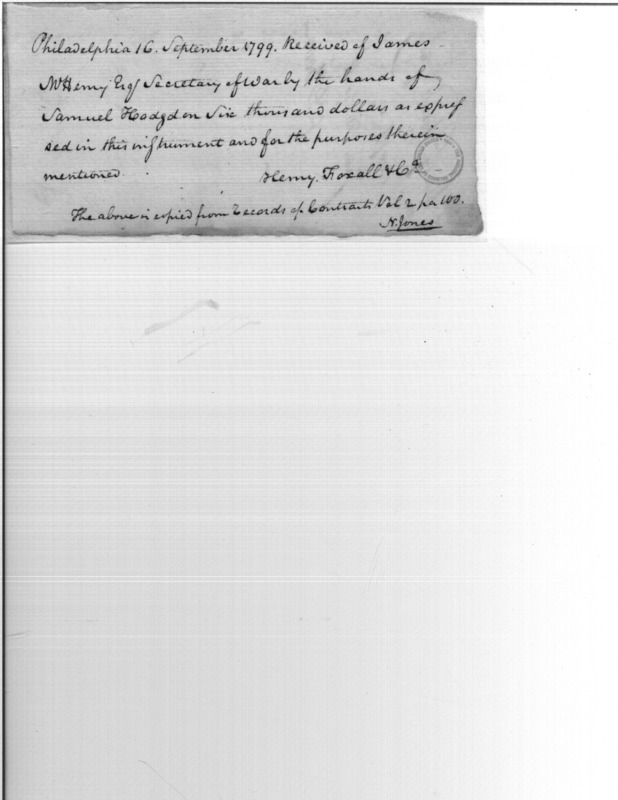 Philadelphia 16. September 1799. Received of James
McHenry Esqr Secretary of War by the hands of
Samuel Hodgdon Six thousand dollars as expres
sed in this instrument and for the purposes therein
mentioned.      Henry. Foxall & Co.
The above is copied from Records of Contracts Vol 2 pa 100.
N. Jones